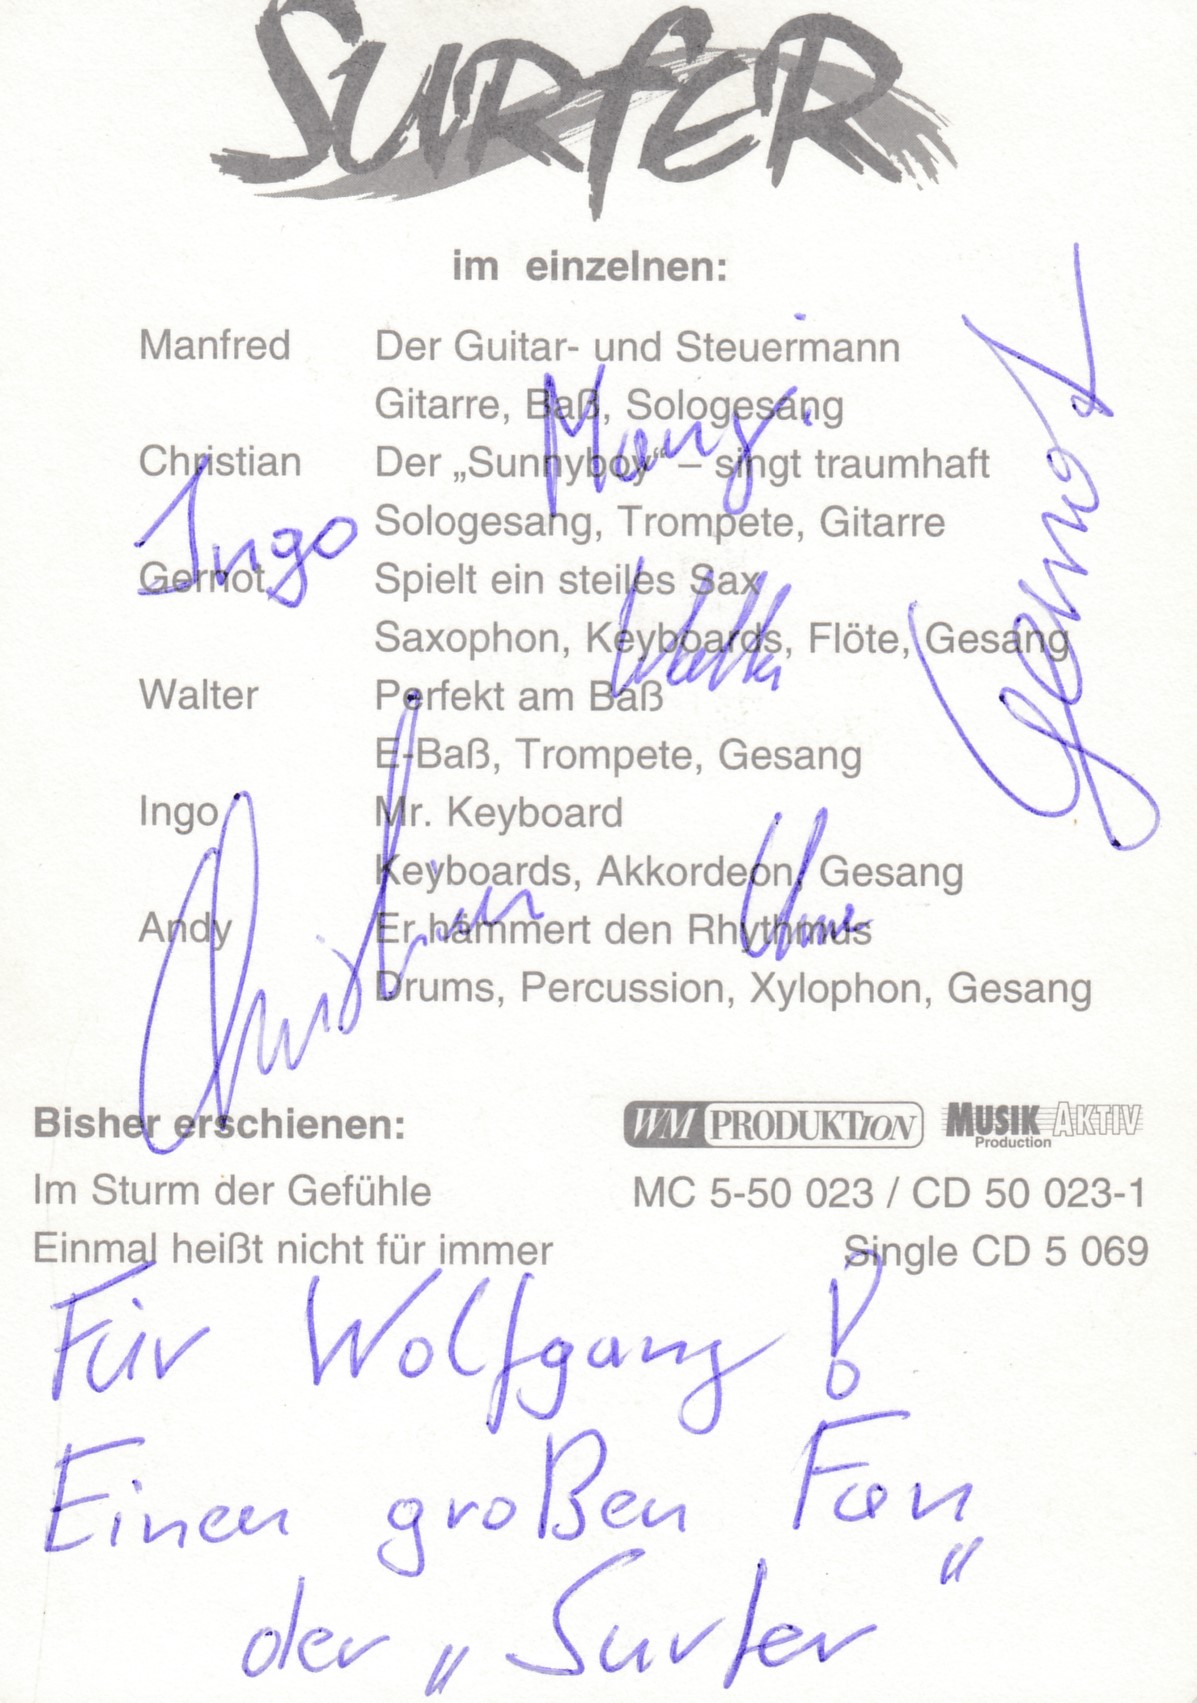 SURFER
im einzelnen:
Manfred Der Guitar- und Steuermann
Gitarre, Baß, Sologesang
Christian Der „Sunnyboy“ – singt traumhaft
Sologesang, Trompete, Gitarre
Gernot Spielt ein steiles Sax
Saxophon, Keyboards, Flöte, Gesang
Walter Perfekt am Baß
E-Baß, Trompete, Gesang
Ingo Mr. Keyboard
Keyboards, Akkordeon, Gesang
Andy Er hämmert den Rhythmus
Drums, Percussion, Xylophon, Gesang
Ingo
Gernot
Walter
Christian
Bisher erschienen: WM PRODUKTION MUSIK AKTIV
Production
Im Sturm der Gefühle MC 5-50 023 / CD 50 023-1
Einmal heißt nicht für immer Single CD 5 069
Für Wolfgang!
Einen großen Fan
der „Surfer“